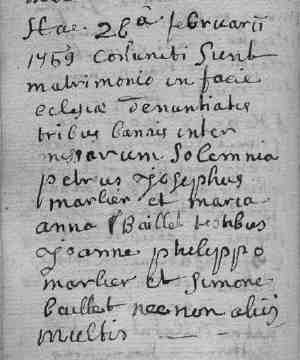 Hac 28â februarii
1769 Coniuncti Sunt
matrimonio in facie
eclesiæ denuntiatis
tribus bannis inter
missarum Solemnia
petrus Josephus
marlier et maria
anna Baillet testibus
Joanne philippo
marlier et Simone
baillet necnon aliis
multis